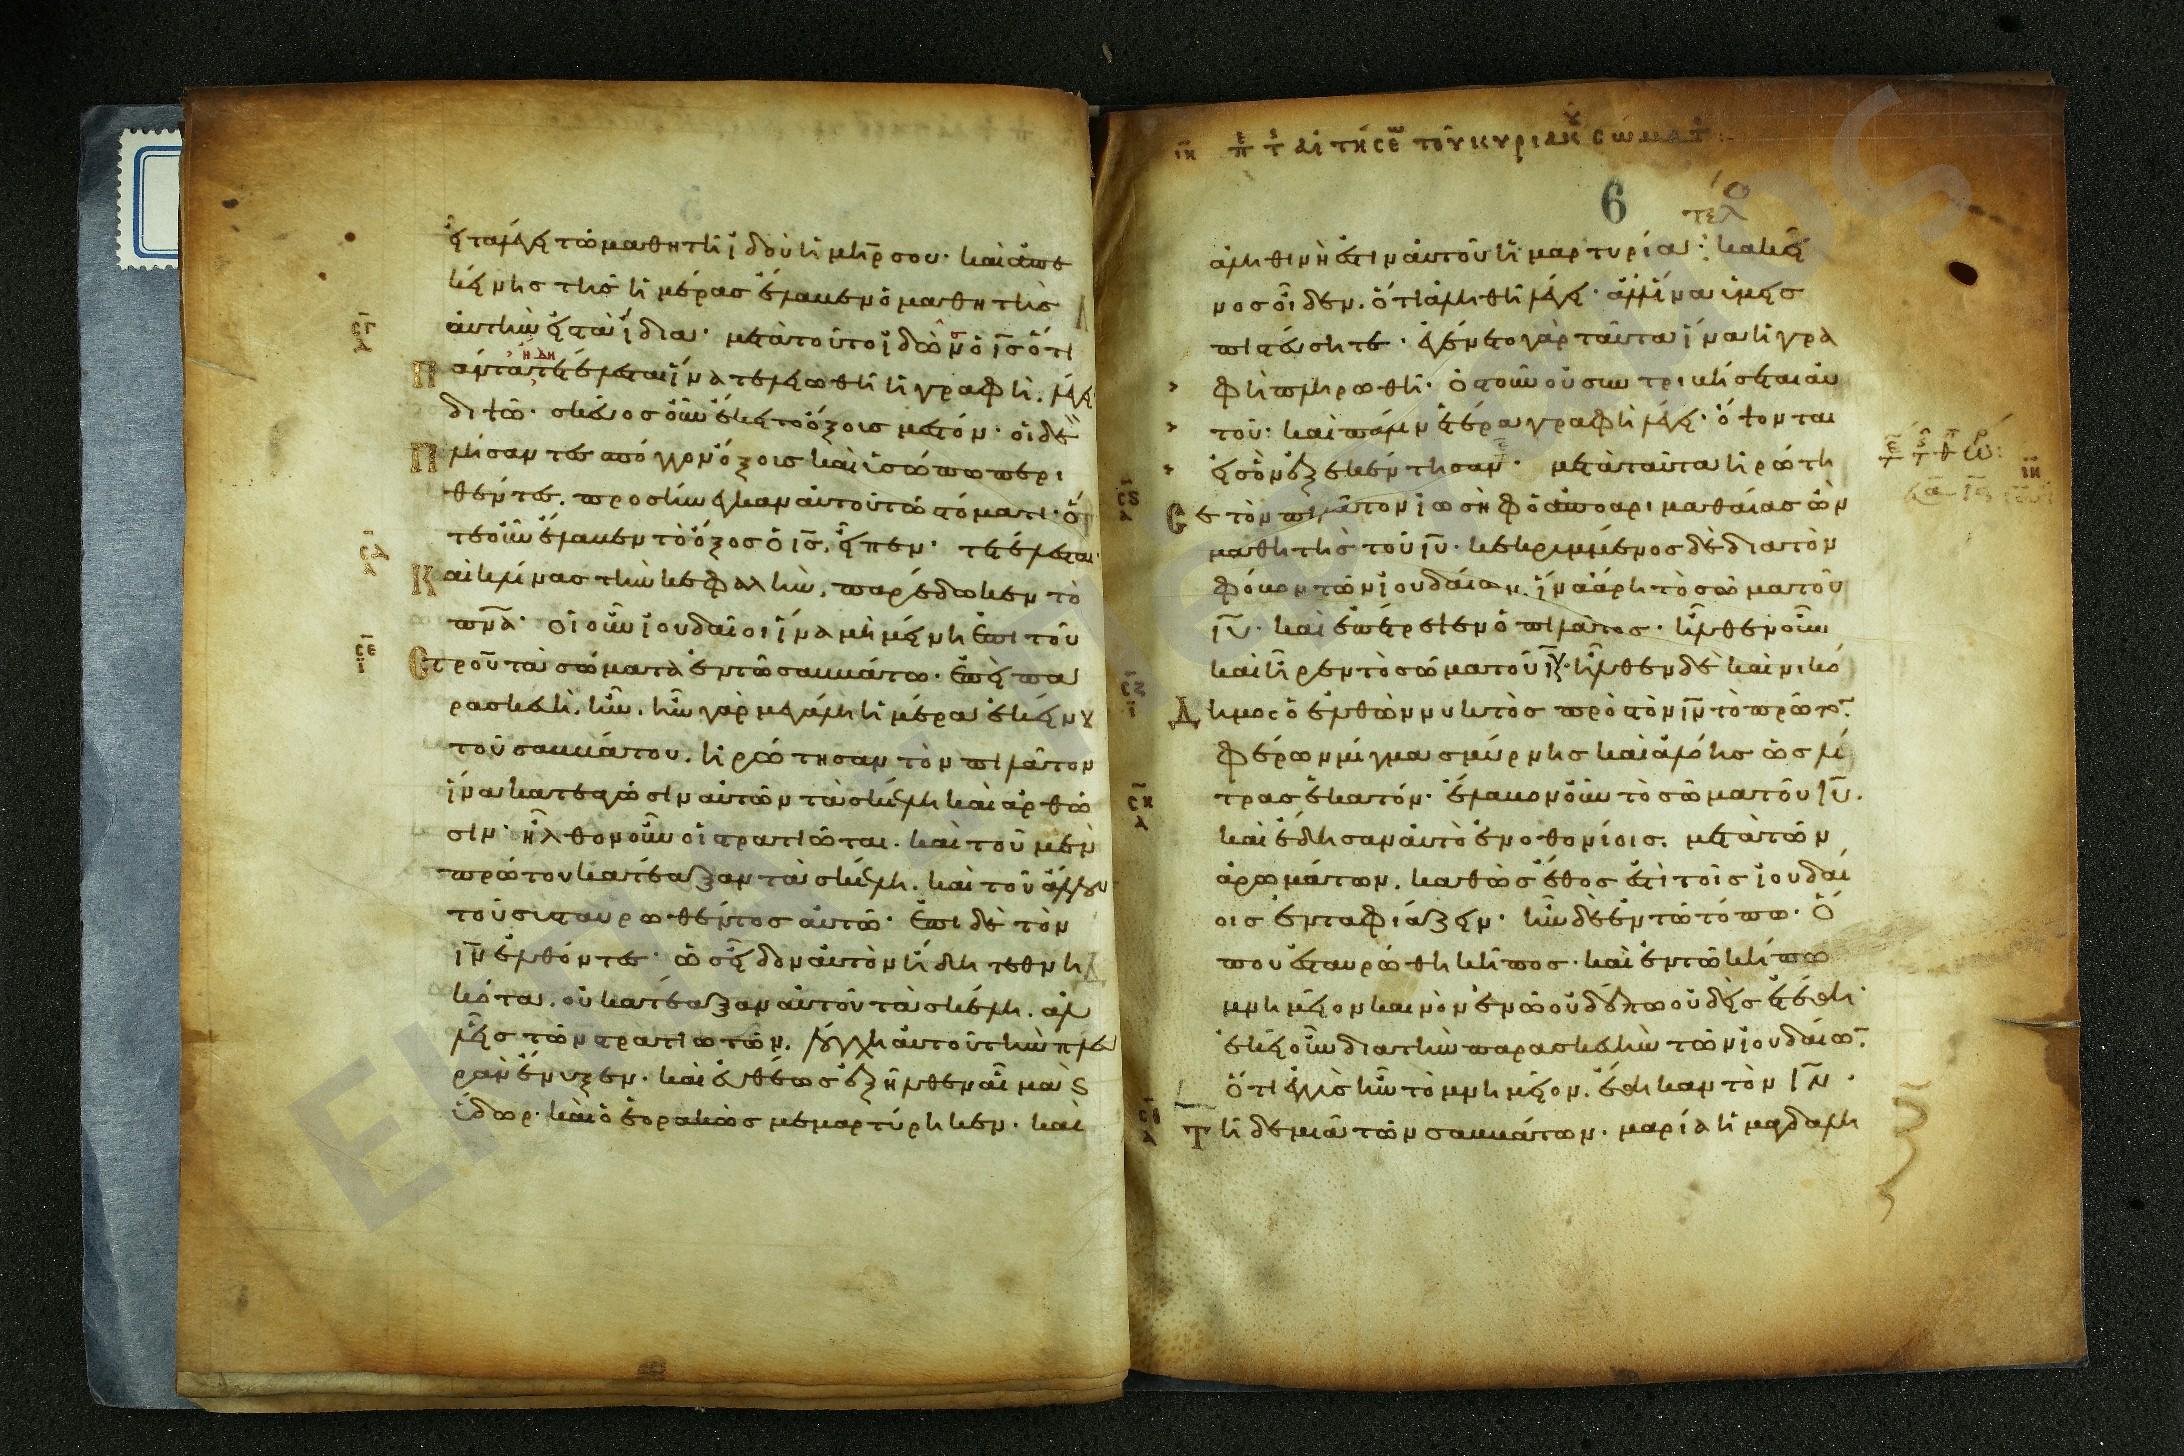 εἶτα λέγει τῶ μαθητῆ ἰδοὺ ἡ μῆρ σου· καὶ ἀπ ἐ
κείνης τῆς ἡμέρας ἔλαβεν ὁ μαθητὴς
αὐτὴν εἰς τὰ ἴδια· μετὰ τοῦτο ἰδὼν ὁ ις ὅτι
ἤδη
πάντα τετέλεσται ἵνα τελειωθῆ ἡ γραφὴ. λέγει
διψῶ· σκεῦος οὖν ἔκειτο ὄξους μεστόν· οἱ δὲ
πλήσαντες σπόγγον ὄξους καὶ ὑσώπω περι
θέντες, προσήνεγκαν αὐτοῦ τῶ στόματι· ὅ
τε οὖν ἔλαβεν τὸ ὄξος ὁ ις, εἶπεν· τετέλεσται·
Καὶ κλίνας τὴν κεφαλὴν, παρέδωκεν τὸ
πνα· οἱ οὖν ἰουδαῖοι ἵνα μὴ μείνη ἐπὶ τοῦ
Στροῦ τὰ σώματα ἐν τῶ σαββάτω· ἐπεὶ πα
ρασκευὴ, ἦν, ἦν γὰρ μεγάλη ἡ ἡμέρα ἐκείνου
τοῦ σαββάτου, ἠρώτησαν τὸν πιλᾶτον
ἵνα κατεαγῶσιν αὐτῶν τὰ σκέλη καὶ ἀρθῶ
σιν· ἦλθον οὖν οἱ στρατιῶται· καὶ τοῦ μὲν
πρώτου κατέαξαν τὰ σκέλη. καὶ τοῦ ἄλλου
τοῦ συσταυρωθέντος αὐτῶ· ἐπὶ δὲ τὸν
ιν ἐλθόντες· ὡς εἶδον αὐτὸν ἤδη τεθνη
κότα, οὐ κατέαξαν αὐτοῦ τὰ σκέλη. ἀλλ
εἷς τῶν στρατιωτῶν, λόγχη αὐτοῦ τὴν πλευ
ρὰν ἔνυξεν· καὶ εὐθέως ἐξῆλθεν αἷμα καὶ
ὕδωρ· καὶ ὁ ἑωρακὼς μεμαρτύρηκεν· καὶ
αἰτησε τοῦ κυριακοῦ σώματ
6
τελ
ἀληθινή ἐστιν αὐτοῦ ἡ μαρτυρία· κακεῖ
νος οἶδεν, ὅτι ἀληθῆ λέγει· ἀλλ ἵνα ὑμεῖς
πιστεύσητε· ἐγένετο γὰρ ταῦτα ἵνα ἡ γρα
φὴ πληρωθῆ· ὀστοῦν οὐ συντριβήσεται αὐ
τοῦ· καὶ πάλιν ἑτέρα γραφὴ λέγει· ὄψονται
εἰς ὃν ἐξεκέντησαν· μετὰ ταῦτα ἠρώτη
Σε τὸν πιλᾶτον ἰωσὴφ ὁ ἀπὸ ἀριμαθαίας ὢν
μαθητὴς τοῦ ιυ· κεκρυμμένος δὲ διὰ τὸν
φόβον τῶν ἰουδαίων, ἵνα ἄρη τὸ σῶμα τοῦ
ιυ· καὶ ἐπέτρεψεν ὁ πιλᾶτος· ἦλθεν οὖν
καὶ ἦρεν τὸ σῶμα τοῦ ιυ· ἦλθεν δὲ καὶ νικό
Δημος ὁ ἐλθὼν νυκτὸς πρὸς τὸν ιν τὸ πρῶτον
φέρων μίγμα σμύρνης καὶ ἀλόης ὡς λί
τρας ἑκατόν· ἔλαβον οὖν τὸ σῶμα τοῦ ιυ.
καὶ ἔδησαν αὐτὸ ἐν ὀθονίοις, μετὰ τῶν
ἀρωμάτων, καθὼς ἔθος ἐστὶ τοῖς ἰουδαί
οις ἐνταφιάζειν· ἦν δὲ ἐν τῶ τόπω· ὅ
που ἐσταυρώθη κῆπος· καὶ ἐν τῶ κήπω
μνημεῖον καινὸν ἐν ὧ οὐδέπω οὐδεὶς ἐτέθη·
ἐκεῖ οὖν διὰ τὴν παρασκευὴν τῶν ἰουδαίων
ὅτι ἐγγὺς ἦν τὸ μνημεῖον, ἔθηκαν τὸν ιν·
Τῆ δὲ μιᾶ τῶν σαββάτων· μαρία ἡ μαγδαλη